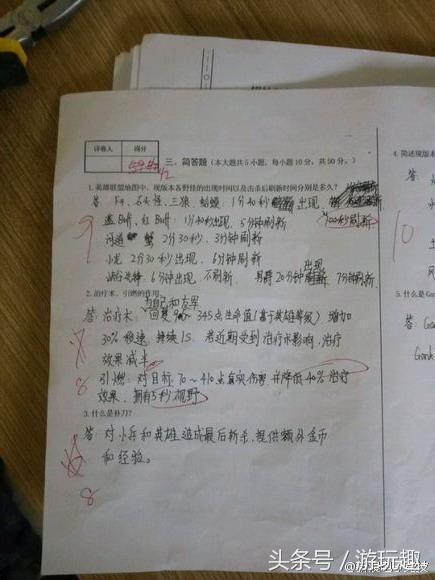 评卷人 得分
三、简答题（本大题共5小题，每小题10分，共50分。）
1.英雄联盟地图中，现版本各野怪的出现时间以及击杀后刷新时间分别是多久？
答：F4、石头怪、三狼、蛤蟆：1分40秒出现，100秒刷新
蓝Buff、红Buff：1分40秒出现，5分钟刷新
河道蟹 2分30秒，3分钟刷新
小龙 2分30秒出现，6分钟刷新
峡谷先锋：6分钟出现，不刷新 男爵20分钟出现 7分钟刷新
9
2.治疗术、引燃的作用。
答：治疗术：为自己和友军回复90~345点生命值（基于英雄等级）增加
30%移速，持续1S，若近期受到治疗术影响，治疗
效果减半
引燃：对目标70~410点真实伤害，并降低40%治疗
效果，拥有5秒视野
8
3.什么是补刀？
答：对小兵和英雄造成最后斩杀，提供额外金币
和经验。
8
4.简述现版本
答：
10
5.什么是Ga
答：
头条号／游玩趣